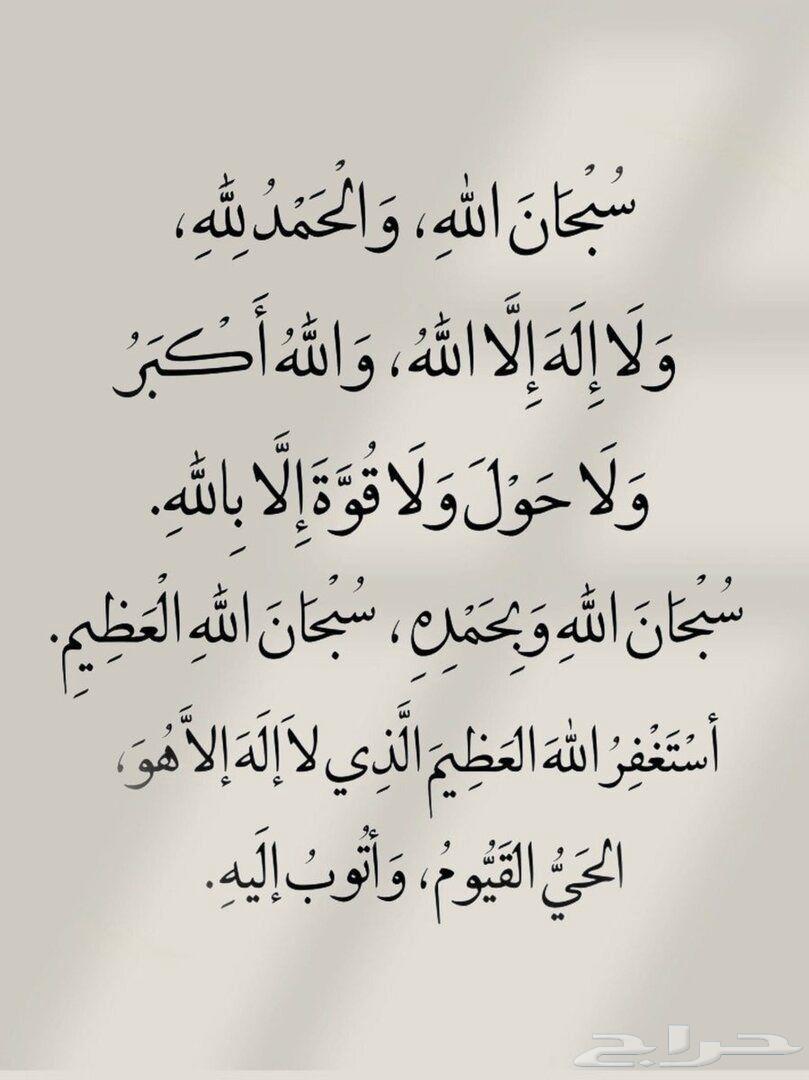 سُبْحَانَ اللهِ، وَالْحَمْدُ لِلَّهِ،
وَلَا إِلَهَ إِلَّا اللهُ، وَاللهُ أَكْبَرُ
وَلَا حَوْلَ وَلَا قُوَّةَ إِلَّا بِاللهِ.
سُبْحَانَ اللهِ وَبِحَمْدِهِ، سُبْحَانَ اللهِ الْعَظِيمِ.
أسْتَغْفِرُ اللهَ العَظِيمَ الَّذِي لاَ إلَهَ إلاَّ هُوَ،
الحَيُّ القَيُّومُ، وَأتُوبُ إلَيهِ.
حراج